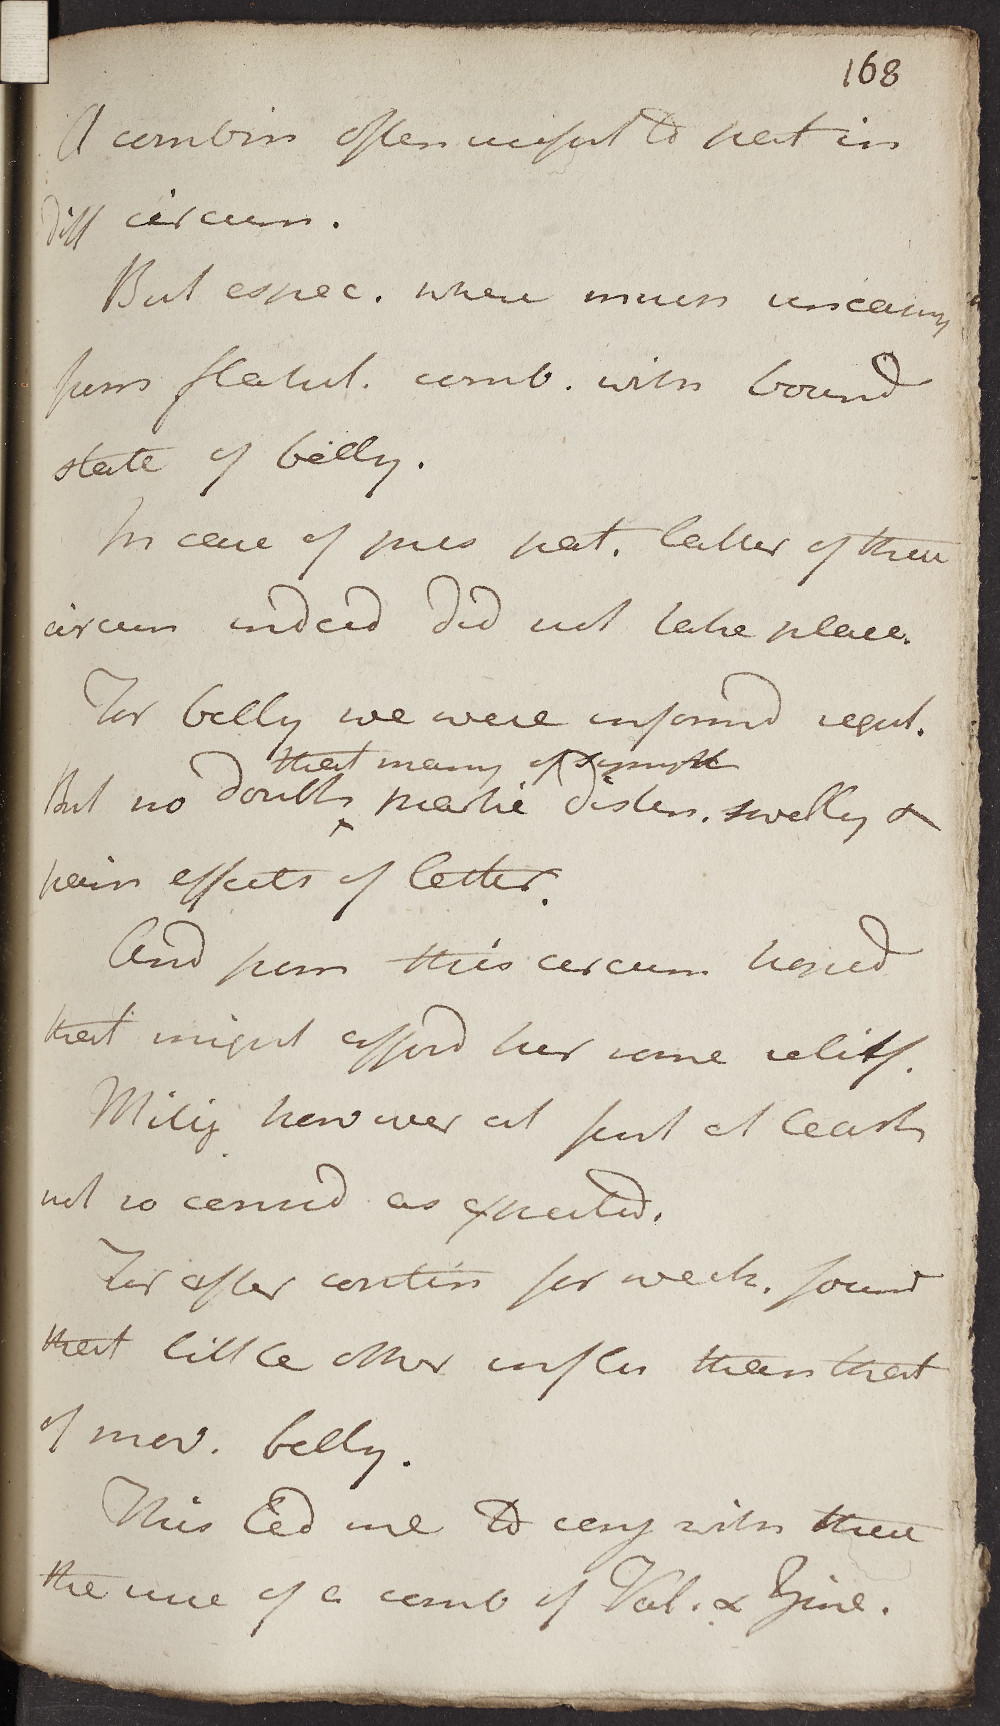 168
A combin often useful to pat in
diff circum.
But espec. where much uneasy
from flatul. comb. with bound
state of belly.
In case of pres pat. latter of these
circum indeed did not take place.
For belly we were informd regul.
that many of sympt
But no doubt partic disten. swellg &
pain effects of latter.
And from this circum hoped
that might afford her some relief.
however at first at least
not so as expected.
For after contin for week. found
that little other influ than that
of mov. belly.
This led me to conj with these
the use of a comb of Val. & Zinc.